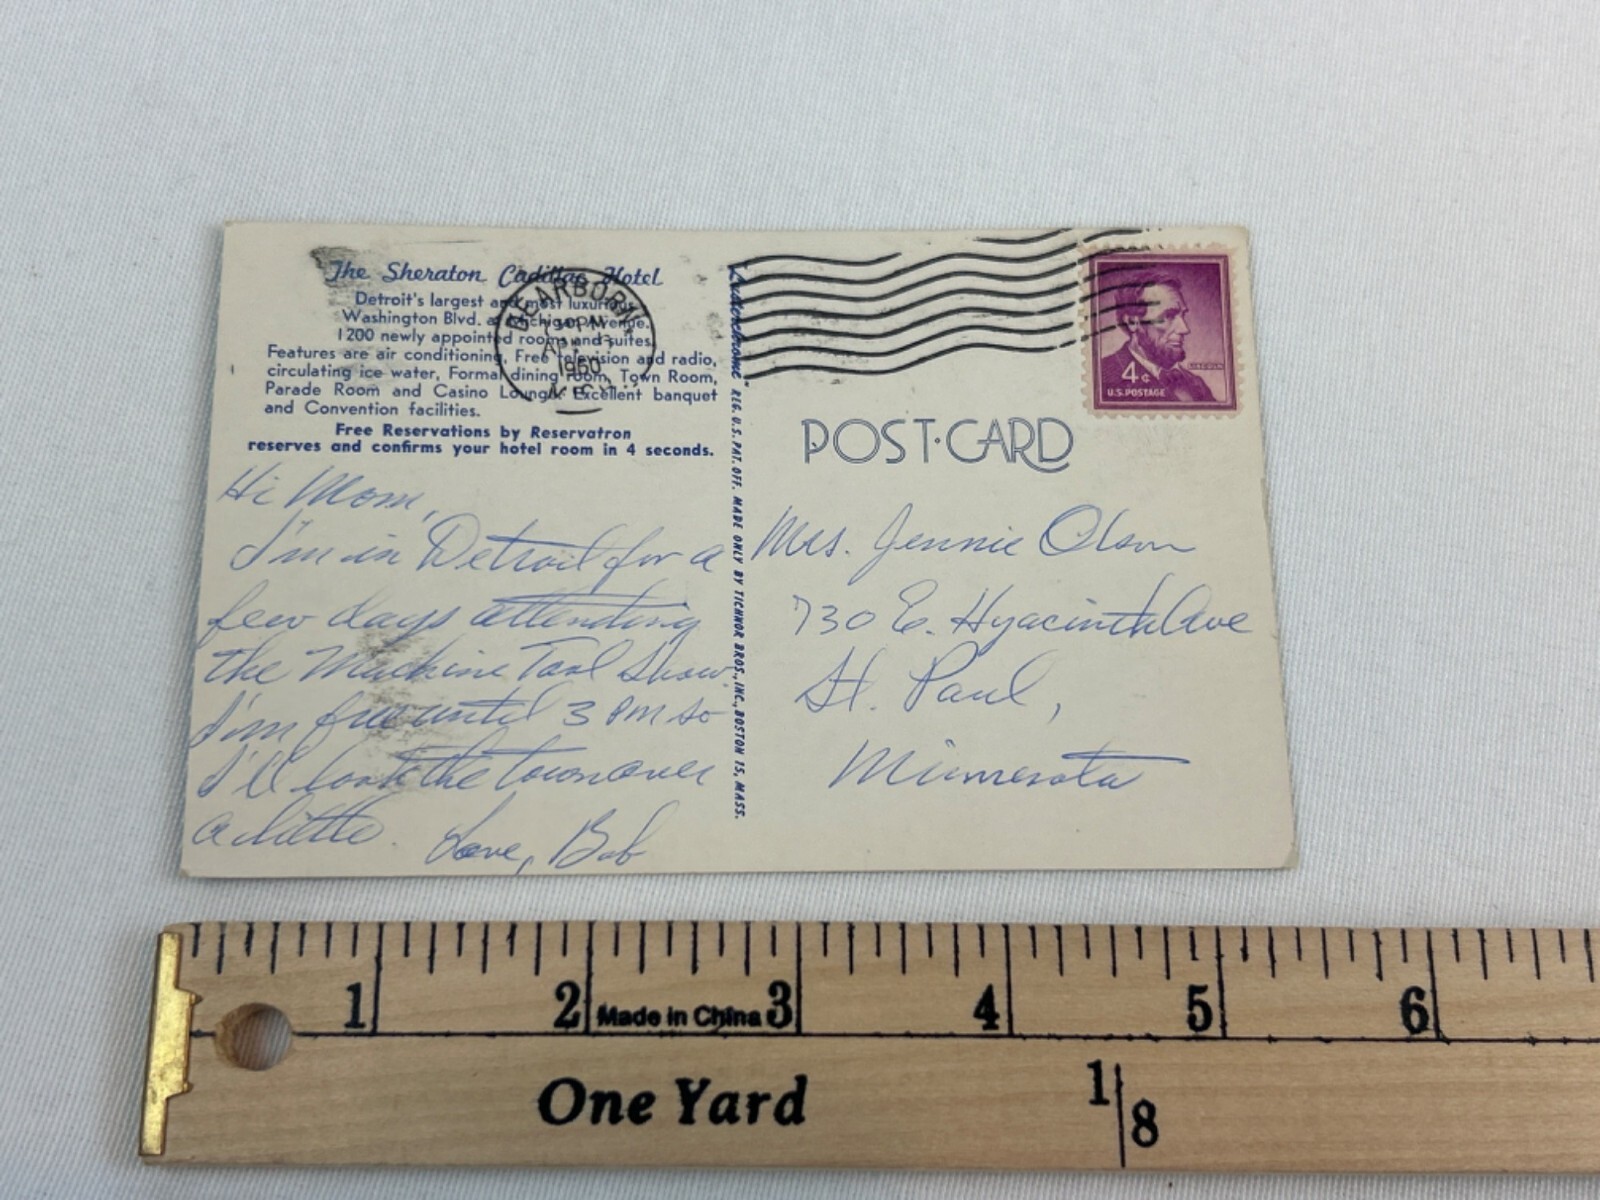 The Sheraton Cadillac Hotel
Detroit's largest and most luxurious.
Washington Blvd. at Michigan Avenue.
1200 newly appointed rooms and suites.
Features are air conditioning, Free television and radio,
circulating ice water, Formal dining room, Town Room,
Parade Room and Casino Lounge. Excellent banquet
and Convention facilities.
Free Reservations by Reservatron
reserves and confirms your hotel room in 4 seconds.
DEARBORN
PM
1960
MICH.
Hi Mom,
I'm in Detroit for a
few days attending
the Machine Tool Show.
I'm free until 3 PM so
I'll look the town over
a little. Love, Bob
"Lusterchrome" REG. U.S. PAT. OFF. MADE ONLY BY TICHNOR BROS., INC., BOSTON 15, MASS.
LINCOLN
4¢
U.S. POSTAGE
POST·CARD
Mrs. Jennie Olson
730 E. Hyacinth Ave
St. Paul,
Minnesota
1 2 3 4 5 6
Made in China
One Yard
1|8